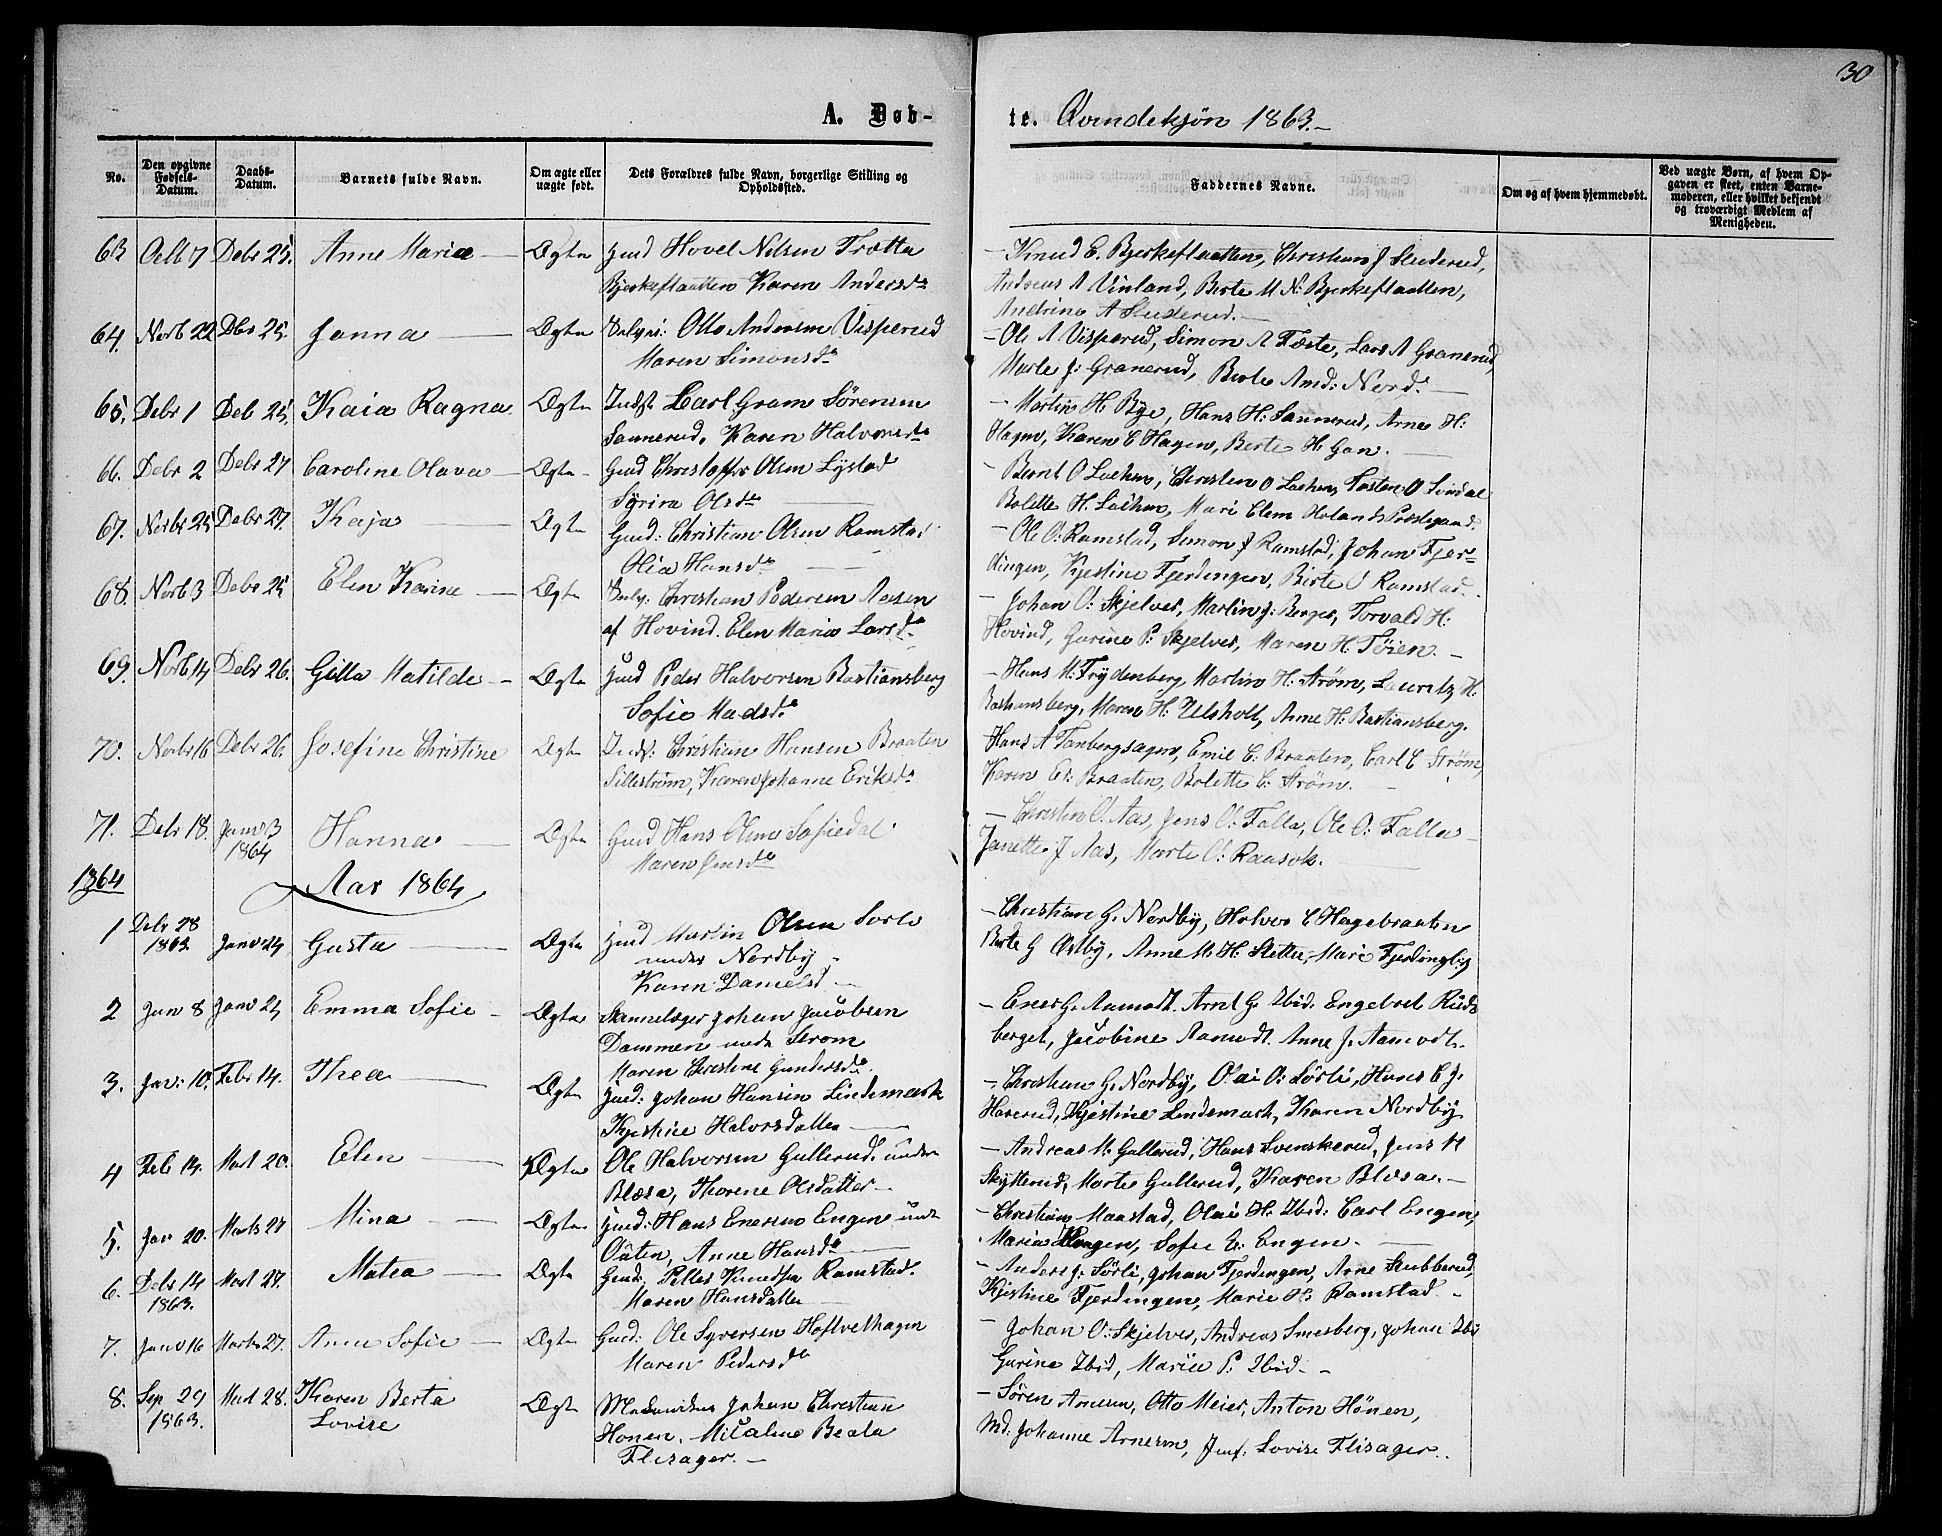 30
A. Døb-
te. Qvindekjøn 1863.-
No.
Den opgivne Fødsels-Datum.
Daabs-Datum.
Barnets fulde Navn.
Om ægte eller uægte født.
Dets Forældres fulde Navn, borgerlige Stilling og Opholdssted.
Faddernes Navne.
Om og af hvem hjemmedøbt.
Ved uægte Børn, af hvem Opgaven er skeet, enten Barnemoderen, eller hvilket bekjendt og troværdigt Medlem af Menigheden.
63 Octb 7 Debr 25. Anne Maria Ægte Gmd Hovel Nilsen Trætta
Bjerkeflaatten Karen Andersd.
- Knud E. Bjerkeflaatten, Christian J Sluderud,
Andreas A Vinland, Berte M N. Bjerkeflaatten,
Andrine A Sluderud.
64. Novb 22 Dbr 25. Janna Ægte Otto Andersen Visperud
Maren Simonsd.
- Ole A Visperud, Simon A Fæste, Lars A Granerud,
Marte J. Granerud, Berte Amd: Nord.
65. Debr 1 Deb 25. Kaia Ragna Ægte Indst Carl Gram Sørensen
Sannerud, Karen Halvorsd.
- Martin H. Bye, Hans H: Sannerud, Arne H:
Hagen, Karen C Hagen, Berte H. Gan.
66. Debr 2 Debr 27 Caroline Olava Ægte Gmd Christoffer Olsen Lystad
Syrine Olsd.
- Bernt O Lachen, Christen O Lachen, Tosten O
Bolette H. Lachen, Mari Clem Holands Præstegaard.
67. Novbr 25 Debr 27. Kaja Ægte Gmd: Christian Olsen Ramstad
Olia Hansd.
- Ole O: Ramstad, Simon J Ramstad, Johan Fjer-
dingen, Kjestine Fjerdingen, Berte O Ramstad.
68. Novb 3 Debr 25 Elen Karine Ægte Christian Pedersen Aasen
af Hovind. Elen Maria Larsd.
- Johan O: Skjelver, Martin J: Berger, Torvald H:
Hovind, Gurine P: Skjelver, Maren H. Tøien -
69. Novb 14 Debr 26. Gilla Matilde Ægte Gmd Peder Halvorsen Bastiansberg
Sofie Madsd.
- Hans M: Frydenberg, Martin H: Strøm, Lauritz H.
Bastiansberg, Maren H: Ulsholt, Anne H: Bastiansberg.
70. Novbr 16 Debr 26. Josefine Christine Ægte Indst: Christian Hansen Braaten
Sillestrøm, Karen Johanne Eriksd.
Hans A Tanbergsagen, Emil C. Braaten, Carl C Strøm,
Karen Er: Braaten, Bolette C: Strøm.
71. Debr 18. Janv 3 1864 Hanna Ægte Gmd Hans Olsen Sofiedal
Maren Jensd.
- Christen O: Aas, Jens O: Falla, Ole O: Falla
Janette J Aas, Marte O: Raasok.
1864
Aar 1864
1 Debr 28 1863 Janv 24 Gusta Ægte Gmd Martin Olsen Sorli
under Nordby -
Karen Danielsd
- Christian G. Nordby, Halvor C Hagebraaten
Berte G Østby, Anne M. H: Slette, Mari Fjerdingby
2 Jan 8 Janv 24 Emma Sofie Ægte Johan Jacobsen
Dammen under Strøm
Maren Christine Gundersd.
- Ener G. Aamodt. Arnt G. Ibid: Engebret Ruds
berget, Jacobine Aamodt. Anne J. Aamodt.
3. Jan: 10. Febr 14. Thea Ægte Gmd: Johan Hansen Lindemark
Kjestine Halvorsdatter
- Christian G. Nordby, Olai O: Sørli, Hans C J.
Haverud, Kjestine Lindemark, Karen Nordby
4 Feb 14. Mart 20. Elen Ægte Ole Halvorsen Gullerud. under
Blæsa, Thorene Olsdatter
- Andreas M: Gullerud, Hans Svenskerud, Jens H
Skytterud, Marte Gullerud, Karen Blæsa. -
5. Jan 20. Marts 27 Mina Ægte Gmd: Hans Enersen Engen under
Outen, Anne Hansd.
- Christian Maastad, Olai H: Ibid: Carl Engen,
Maria Engen, Sofie E: Engen.
6. Debr 14 1863. Mart 27. Matea Ægte Gmd: Peder Knudsen Ramstad.
Maren Hansdatter
- Anders J: Sørli, Johan Fjerdingen, Arne Stubberud,
Kjestine Fjerdingen, Marie H: Ramstad
7. Janv 16 Marts 27. Anne Sofie Ægte Gmd: Ole Syversen Hoftvethagen
Maren Pedersd.
- Johan O: Skjelver, Andreas Smesberg, Johan Ibid
Gurine Ibid, Marie P. Ibid -
8. Sep 29 1863. Mart 28. Karen Berta Lovise Ægte Johan Christian
Hønen. Beata
Flisager. -
- Søren Arnesen, Otto Meier, Anton Hønen,
Md: Johanne Arnesen, Jmf: Lovise Flisager.